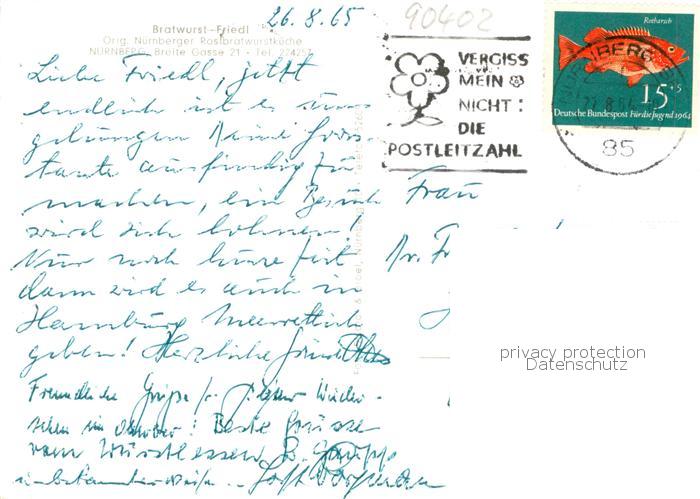 26.8.65
90402
Bratwurst-Friedl
Orig. Nürnberger Rostbratwurstküche
NÜRNBERG, Breite Gasse 21 • Tel.
VERGISS
MEIN
NICHT:
DIE
POSTLEITZAHL
Rotbarsch
15+5
Deutsche Bundespost Für die Jugend 1964
NÜRNBERG
85
Liebe Friedl, jetzt
endlich ist es uns
gelungen Deine
tante ausfindig zu
machen, ein Besuch
wird sich lohnen!
Nur noch kurze Zeit
dann wird es auch in
Hamburg Meerrettich
geben! Herzliche
Freundliche Grüße
sehen im Oktober! Beste Grüsse
vom Wurstessen
unbekannterweise
Frau
Dr. Fr
privacy protection
Datenschutz